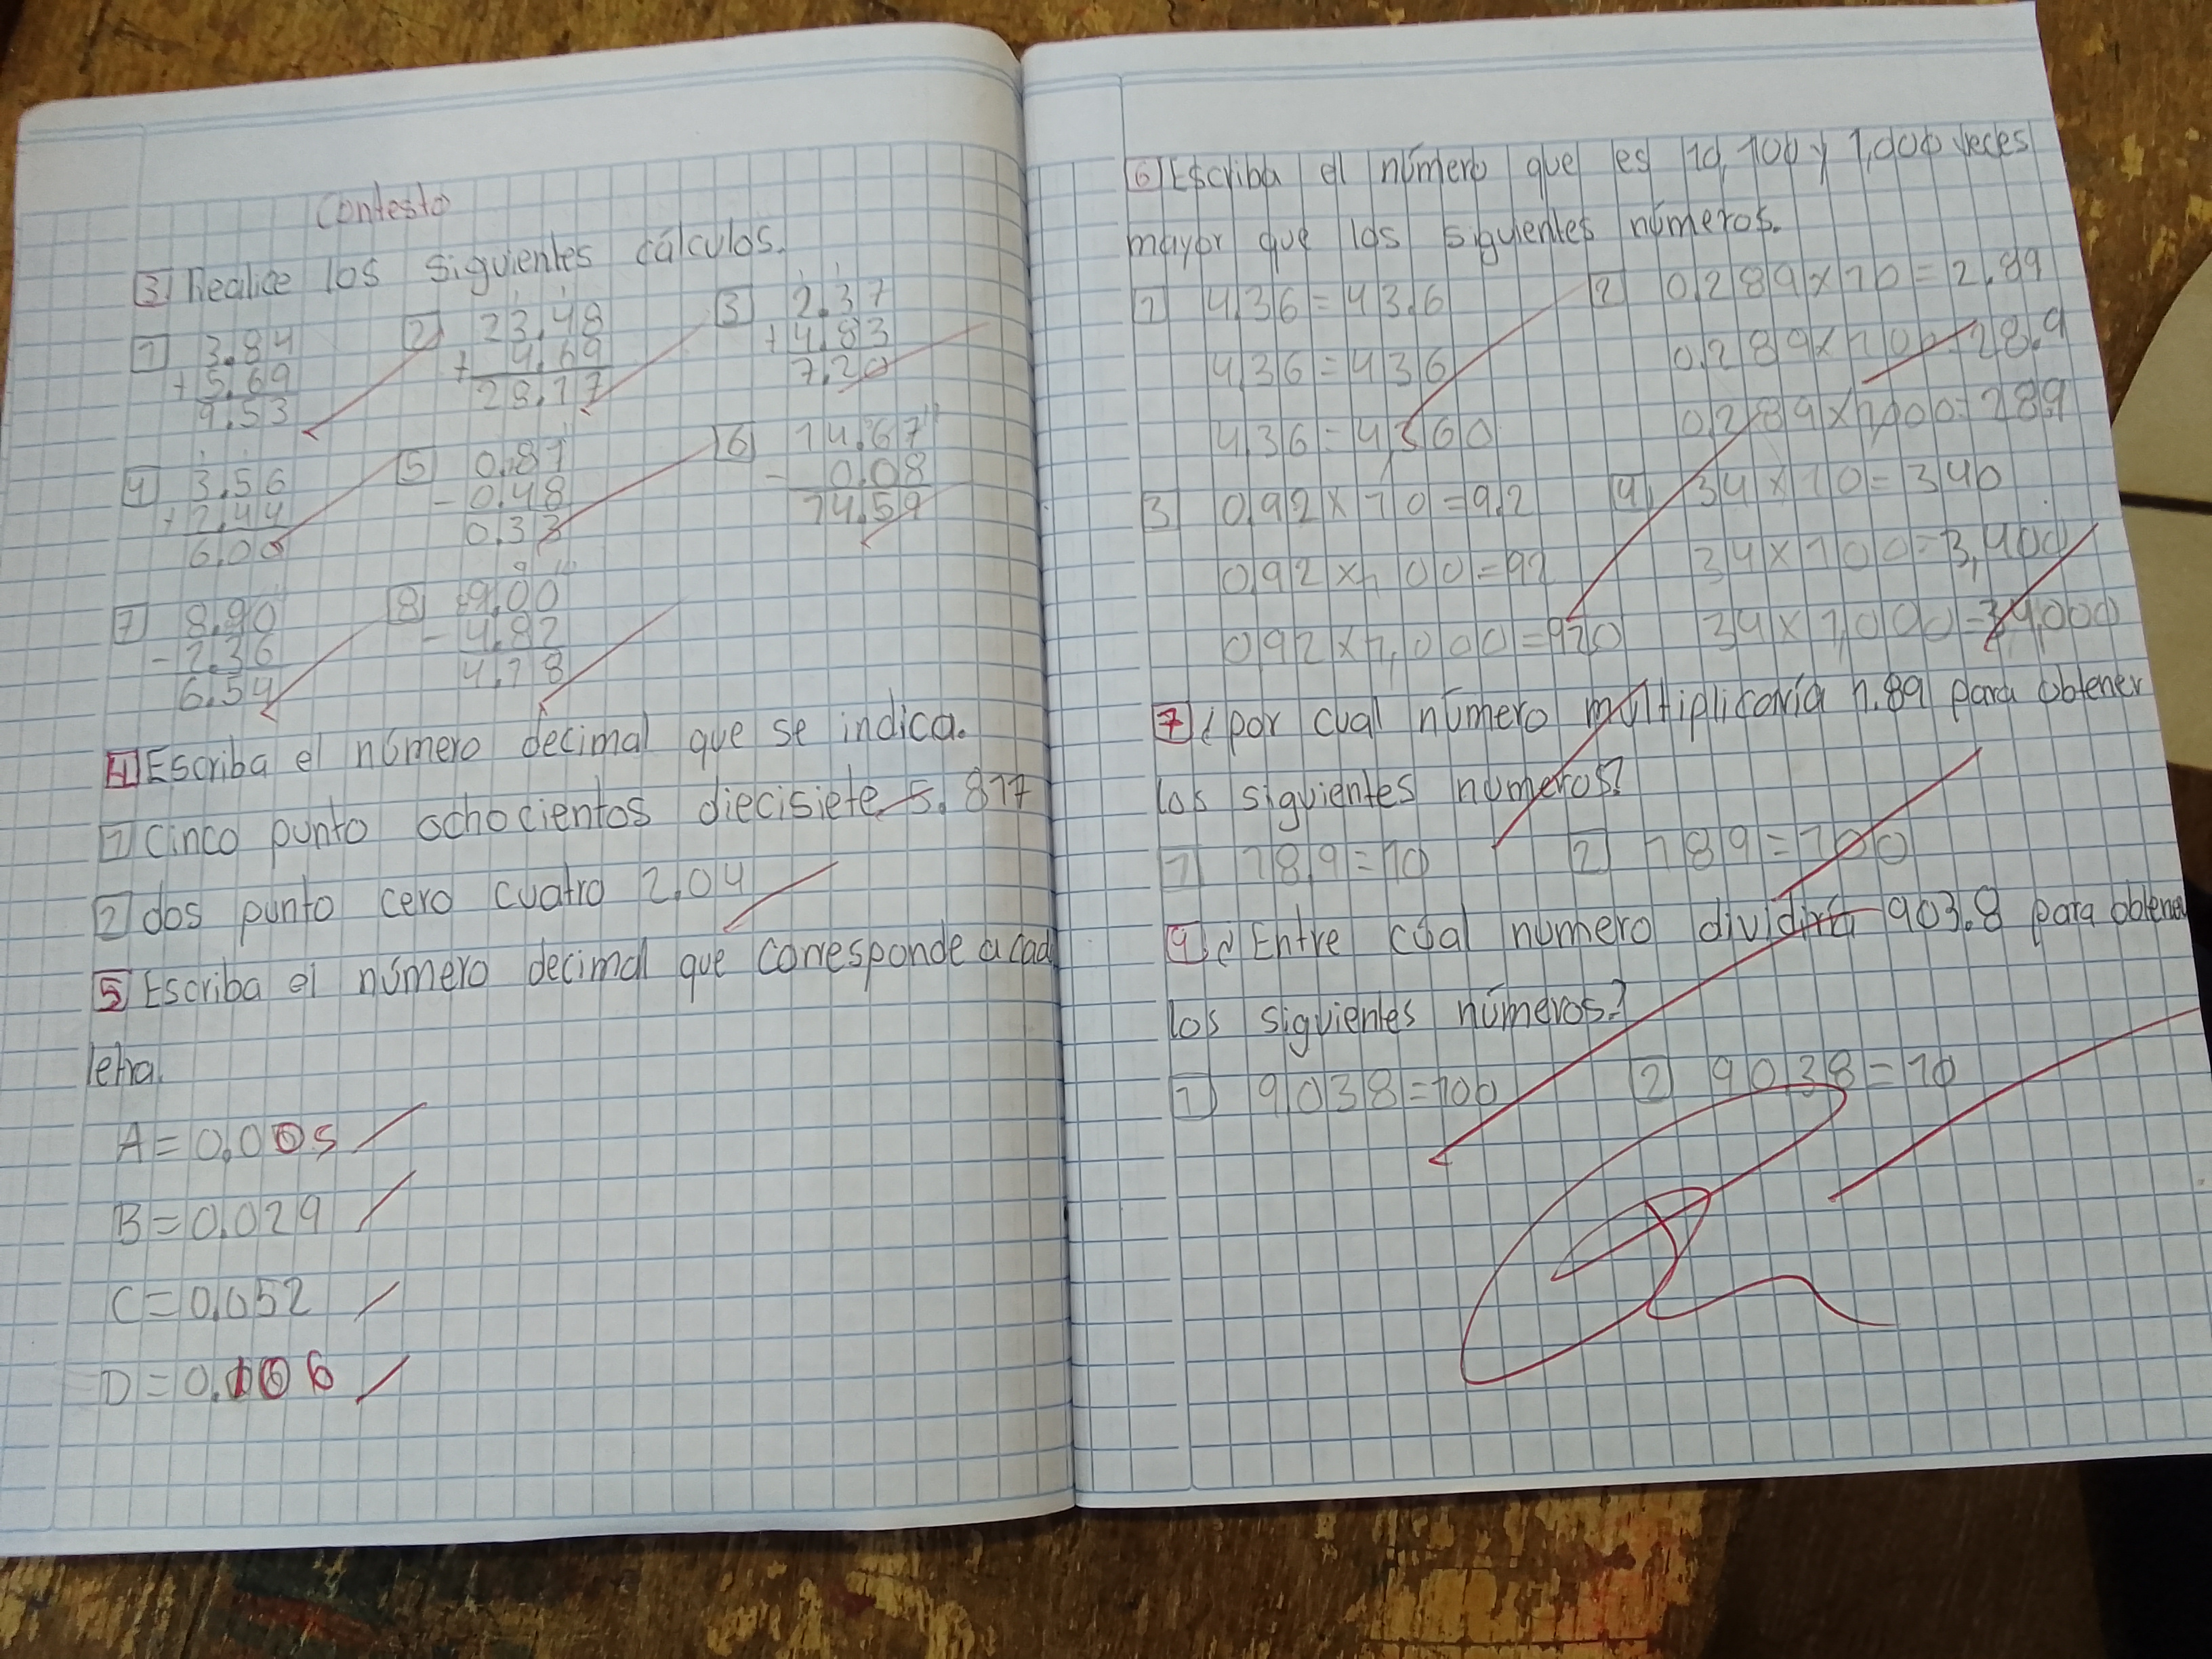 Contesto
3 Realice los siguientes cálculos.
1 3.84 2 23.48 3 2.37
+ 5.69 + 4.69 + 4.83
9.53 28.17 7.20
4 3.56 5 0.81 6 14.67
+ 2.44 - 0.48 - 0.08
6.00 0.33 14.59
7 8.90 8 9.00
- 2.36 - 4.82
6.54 4.18
4 Escriba el número decimal que se indica.
1 Cinco punto ochocientos diecisiete 5.817
2 dos punto cero cuatro 2.04
5 Escriba el número decimal que corresponde a cada
letra.
A=0.005
B=0.029
C=0.052
D=0.106
6 Escriba el número que es 10, 100 y 1,000 veces
mayor que los siguientes números.
1 4.36=43.6 2 0.289x10=2.89
4.36=436 0.289x100=28.9
4.36=4,360 0.289x1,000=289
3 0.92x10=9.2 4 34x10=340
0.92x100=92 34x100=3,400
0.92x1,000=920 34x1,000=34,000
7 ¿por cual número multiplicaría 1.89 para obtener
los siguientes numeros?
1 18.9=10 2 189=100
9 ¿Entre cúal número dividirá 903.8 para obtener
los siguientes números?
1 9.038=100 2 90.38=10